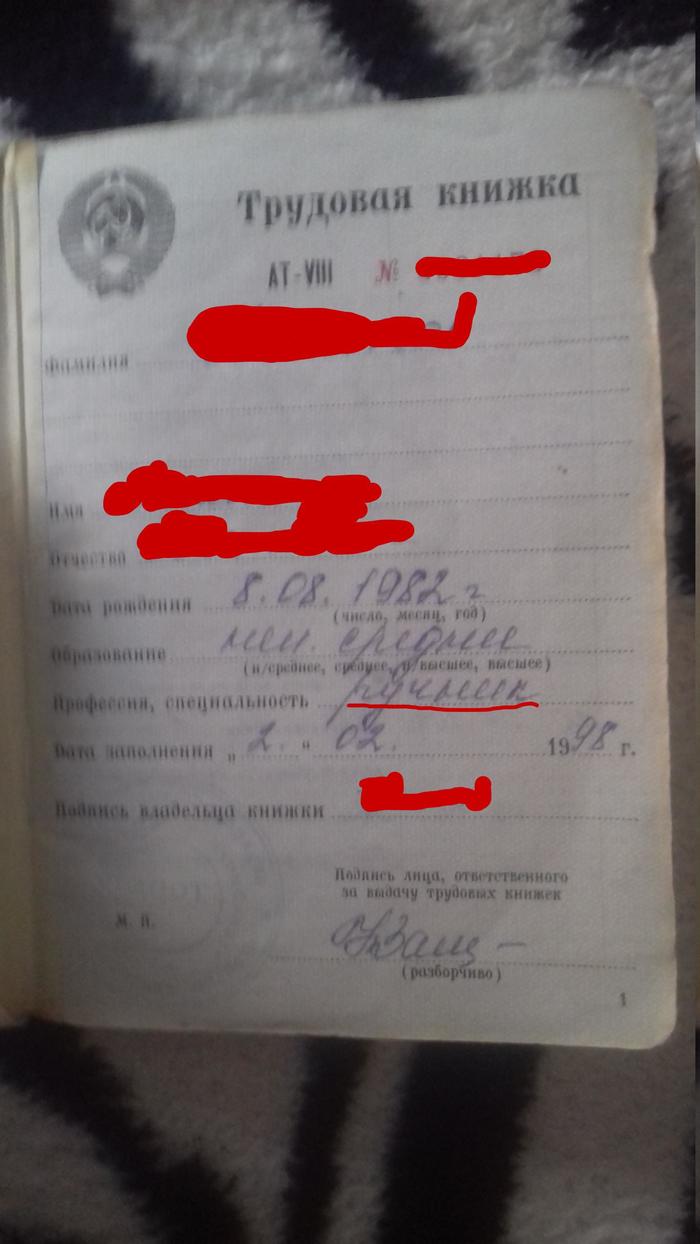 Трудовая книжка
АТ-VIII №
Фамилия
Имя
Отчество
Дата рождения 8.08.1982 г
(число, месяц, год)
Образование неп. средние
(н/среднее, среднее, н/высшее, высшее)
Профессия, специальность
Дата заполнения „ 2. “ 02. 1998 г.
Подпись владельца книжки
Подпись лица, ответственного
за выдачу трудовых книжек
М. П.
(разборчиво)
1